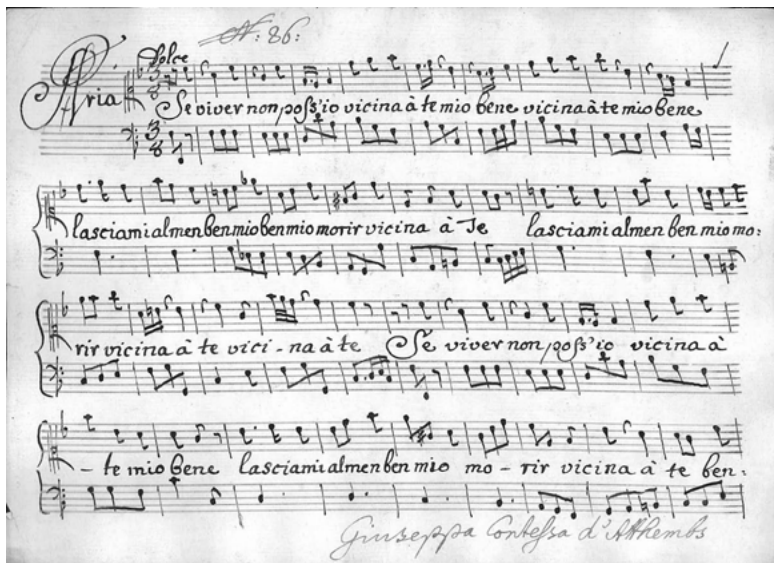 N: 86:
Dolce
Aria
Se viver non poss'io vicina à te mio bene vicina à te mio bene
lasciami almen ben mio ben mio morir vicina à Te lasciami almen ben mio mo:
rir vicina à te vici - na à te Se viver non poss'io vicina à
- te mio bene lasciami almen ben mio mo - rir vicina à te ben:
Giuseppa Contessa d'Atthembs